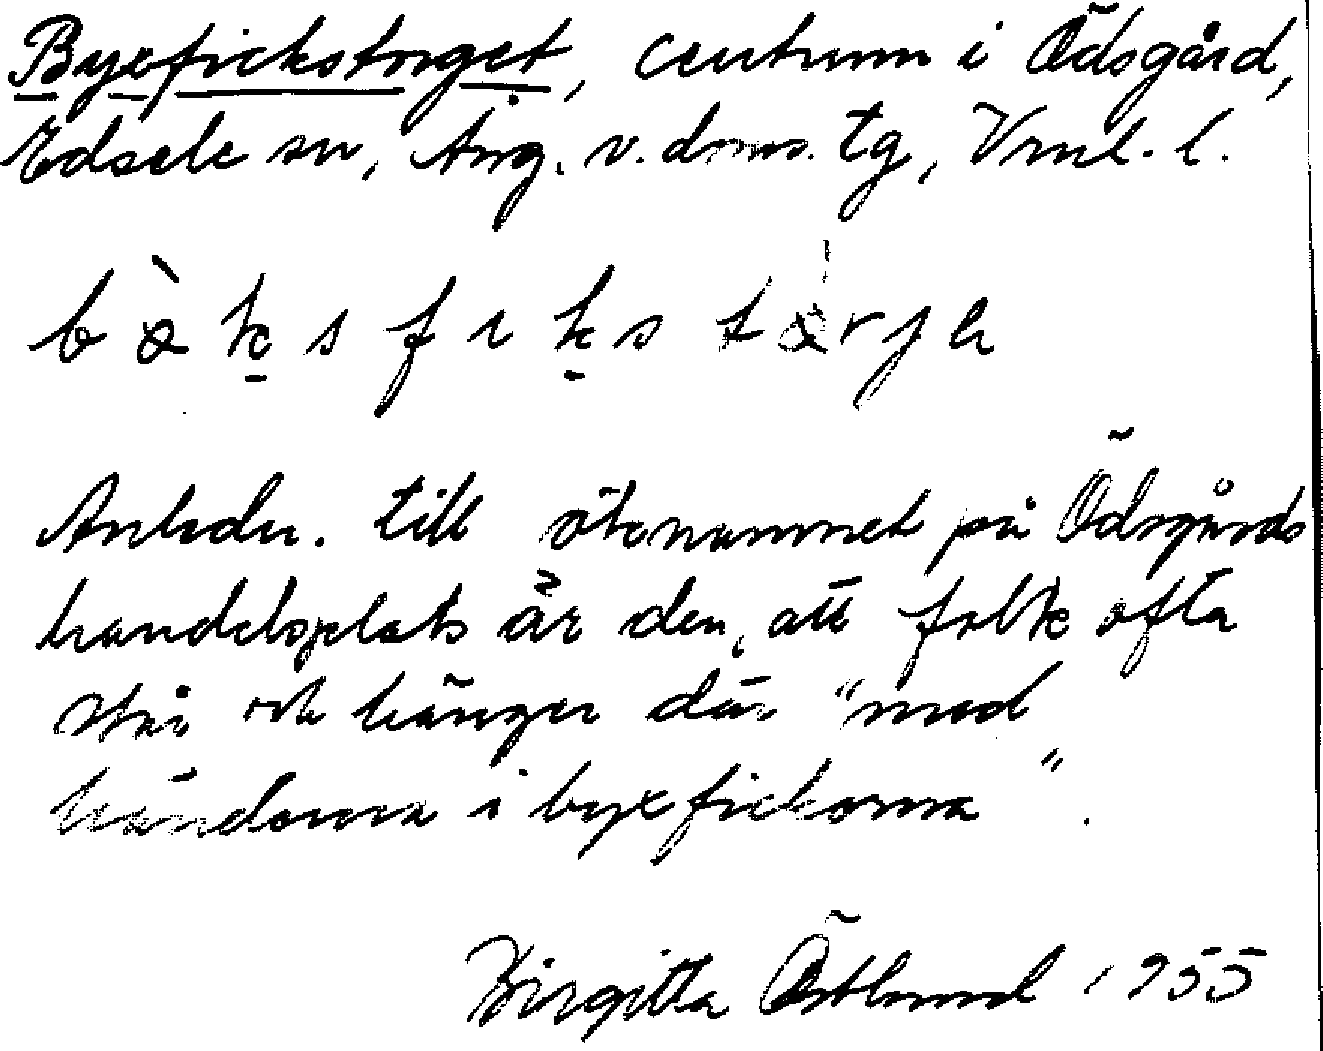 Byxfickstorget, centrum i Ödsgård,
Edsele sn, Ång. v. doms. tg, Vrnl. l.
Anledn. till öknamnet på Ödsgårds
handelsplats är den, att folk ofta
står och hänger där "med
händerna i byxfickorna".
Birgitta Östlund 1955